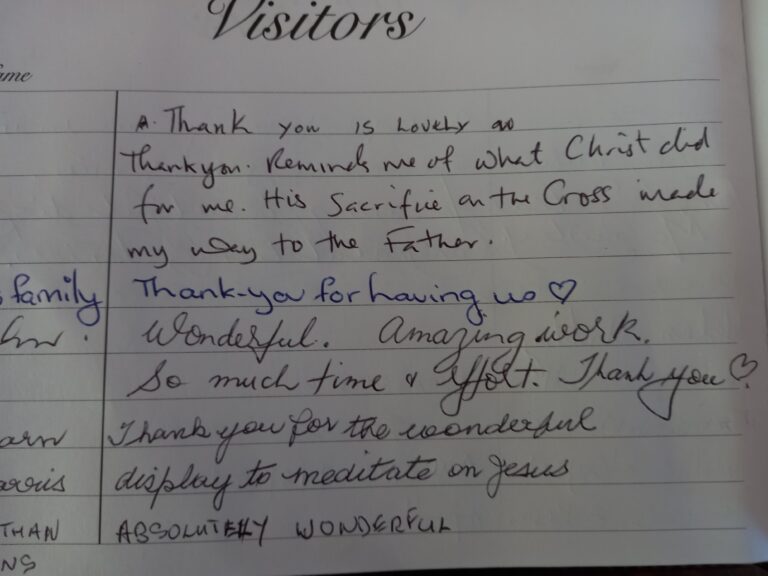 Visitors
A. Thank you is Lovely as
Thankyou. Reminds me of what Christ did
for me. His Sacrifice on the Cross made
my way to the Father.
family Thank-you for having us ♡
Wonderful. Amazing work.
So much time & effort. Thank you ♡
Thank you for the wonderful
display to meditate on Jesus
THAN ABSOLUTELY WONDERFUL
NS